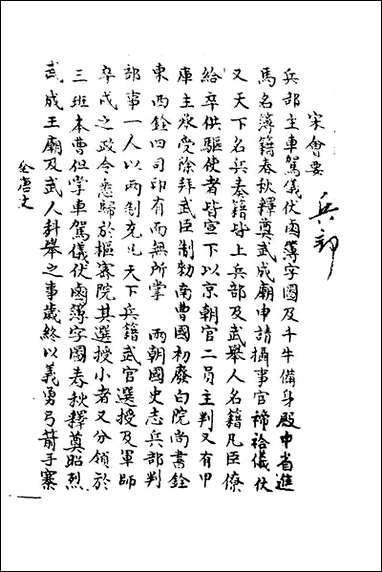 宋會要
兵部
兵部主車駕儀仗鹵簿字圖及千牛備身殿中省進
馬名簿籍春秋釋奠武成廟申請攝事官禘祫儀仗
又天下名兵奏籍皆上兵部及武舉人名籍凡臣僚
給卒供驅使者皆宣下以京朝官二員主判又有甲
庫主承受除拜武臣制勅南曹國初廢白院尚書銓
東西銓四司印有而無所掌 兩朝國史志兵部判
部事一人以兩制充凡天下兵籍武官選授及軍師
卒戍之政令悉歸於樞密院其選授小者又分領於
三班本曹但掌車駕儀仗鹵簿字圖春秋釋奠昭烈
武成王廟及武人科舉之事歲終以義勇弓箭手寨
全唐文